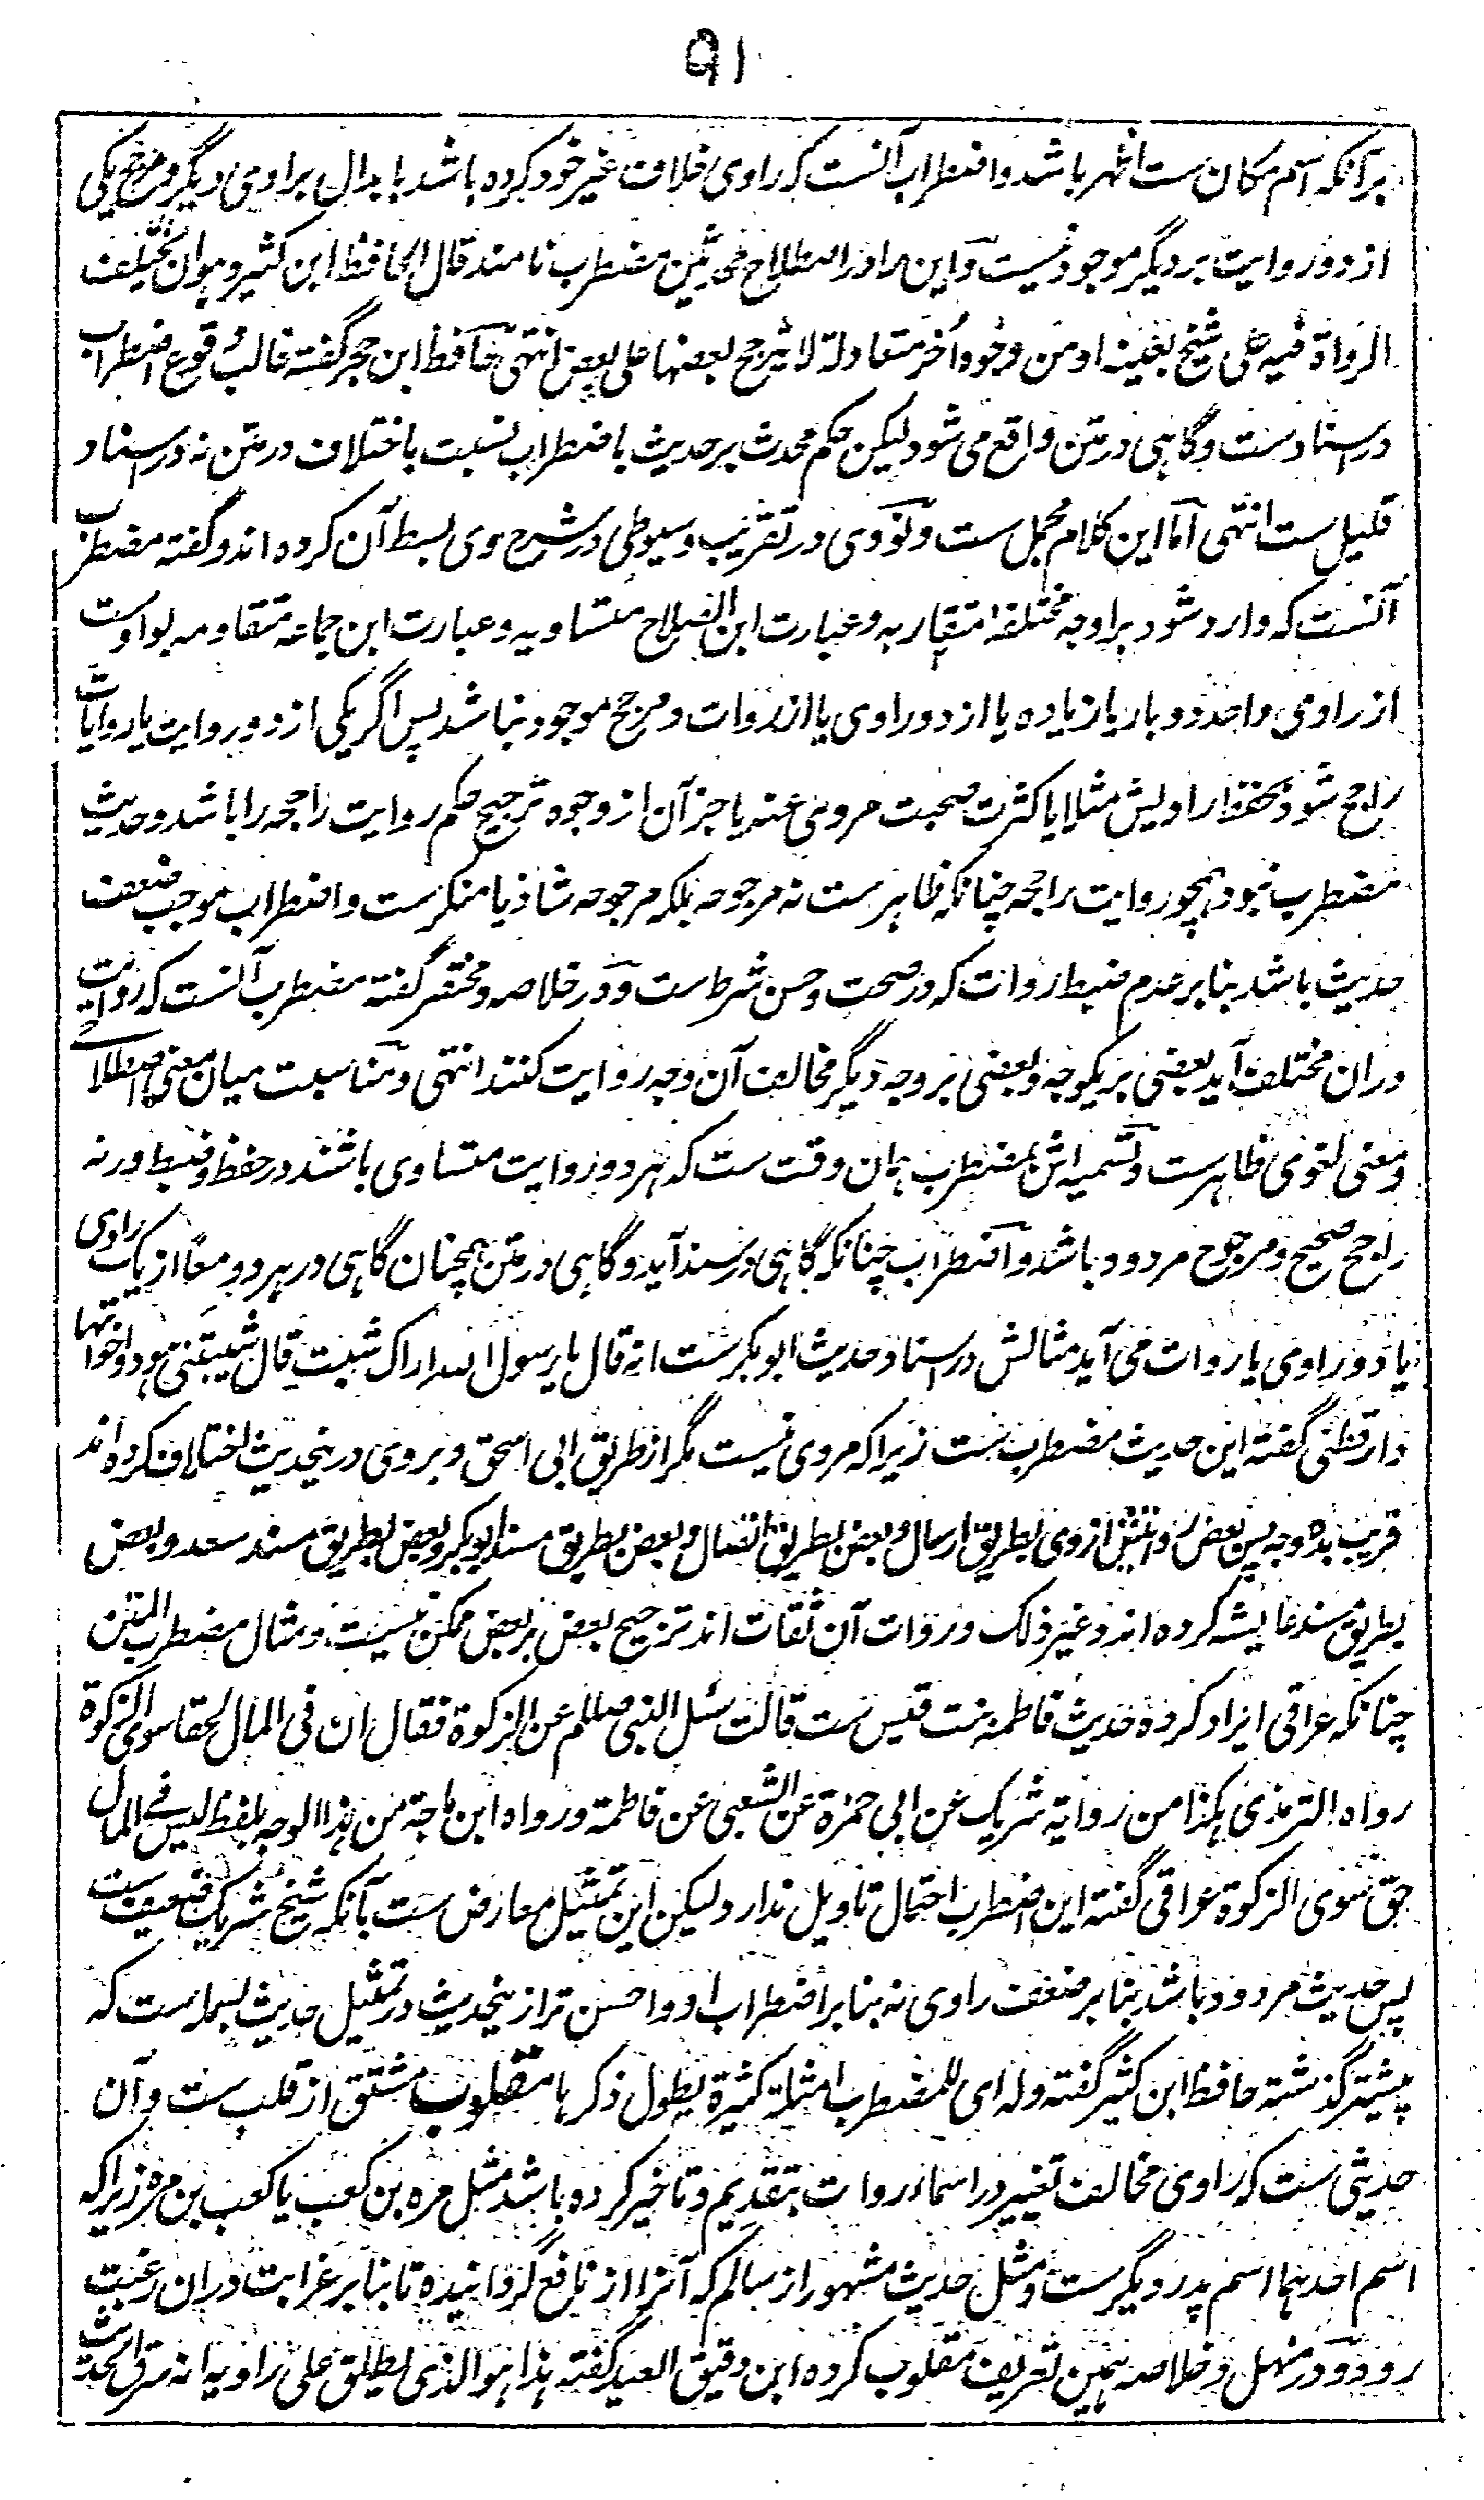 ۹۱
برآنکه اسم مکان ست اظهر باشد و اضطراب آنست که راوی خلاف غیر خود کرده باشد بابدال براوی دیگر و مرجح یکی
از دو روایت بر دیگر موجود نیست و این را در اصطلاح محدثین مضطرب نامند قال الحافظ ابن کثیر و هو ان یختلف
الرواة فیه علی شیخ بعینه او من وجوه أخر متعادلة لا یترجح بعضها علی بعض انتهی حافظ ابن حجر گفته غالب وقوع اضطراب
در اسناد ست و گاهی در متن واقع می شود لیکن حکم محدث بر حدیث باضطراب نسبت باختلاف در متن نه در اسناد
قلیل ست انتهی اما این کلام مجمل ست و نووی در تقریب و سیوطی در شرح وی بسط آن کرده اند و گفته مضطرب
آنست که وارد شود بر اوجه مختلفه متقاربه و عبارت ابن الصلاح متساویه و عبارت ابن جماعه متقاومه بواوست
از راوی واحد دو بار یا زیاده یا از دو راوی یا از روات و مرجح موجود نباشد پس اگر یکی از دو روایت یا روایات
راجح شود بحفظ راویش مثلا یا کثرت صحبت مروی عنه یا جز آن از وجوه ترجیح حکم روایت راجحه را باشد و حدیث
مضطرب نبود همچو روایت راجحه چنانکه ظاهرست نه مرجوحه بلکه مرجوحه شاذ یا منکرست و اضطراب موجب ضعف
حدیث باشد بنابر عدم ضبط روات که در صحت و حسن شرط ست و در خلاصه و مختصر گفته مضطرب آنست که روایت
دران مختلف آید بعضی بر یکوجه و بعضی بر وجه دیگر مخالف آن وجه روایت کنند انتهی و مناسبت میان معنی اصطلاحی
و معنی لغوی ظاهرست و تسمیه اش بمضطرب همان وقت ست که هر دو روایت متساوی باشند در حفظ و ضبط ورنه
راجح صحیح و مرجوح مردود باشد و اضطراب چنانکه گاهی در سند آید و گاهی در متن همچنان گاهی در هر دو معا از یک راوی
یا دو راوی یا روات می آید مثالش در اسناد حدیث ابوبکرست انه قال یا رسول الله اراک شبت قال شیبتنی هود و اخواتها
دارقطنی گفته این حدیث مضطرب ست زیرا که مروی نیست مگر از طریق ابی اسحق و بر وی درینحدیث اختلاف کرده اند
قریب بده وجه پس بعض رواتش از وی بطریق ارسال و بعض بطریق اتصال و بعض بطریق مسند ابوبکر و بعض بطریق مسند سعد و بعض
بطریق مسند عایشه کرده اند و غیر ذلک و روات آن ثقات اند ترجیح بعض بر بعض ممکن نیست و مثال مضطرب المتن
چنانکه عراقی ایراد کرده حدیث فاطمه بنت قیس ست قالت سئل النبی صللم عن الزکوة فقال ان فی المال لحقا سوی الزکوة
رواه الترمذی هکذا من روایة شریک عن ابی حمزة عن الشعبی عن فاطمة و رواه ابن ماجة من هذا الوجه بلفظ لیس فی المال
حق سوی الزکوة عراقی گفته این اضطراب احتمال تاویل ندارد لیکن این تمثیل معارض ست بآنکه شیخ شریک ضعیف ست
پس حدیث مردود باشد بنابر ضعف راوی نه بنابر اضطراب او و احسن تر ازینحدیث در تمثیل حدیث بسمله است که
پیشتر گذشته حافظ ابن کثیر گفته و له ای للمضطرب امثلة کثیرة یطول ذکرها مقلوب مشتق از قلب ست و آن
حدیثی ست که راوی مخالف تغییر در اسماء روات بتقدیم و تاخیر کرده باشد مثل مره بن کعب یا کعب بن مره زیراکه
اسم احدهما اسم پدر دیگر ست و مثل حدیث مشهور از سالم که آنرا از نافع گردانیده تا بنابر غرابت دران رغبت
رود و در منهل و خلاصه همین تعریف مقلوب کرده ابن دقیق العید گفته هذا هو الذی یطلق علی راویه انه سرق الحدیث